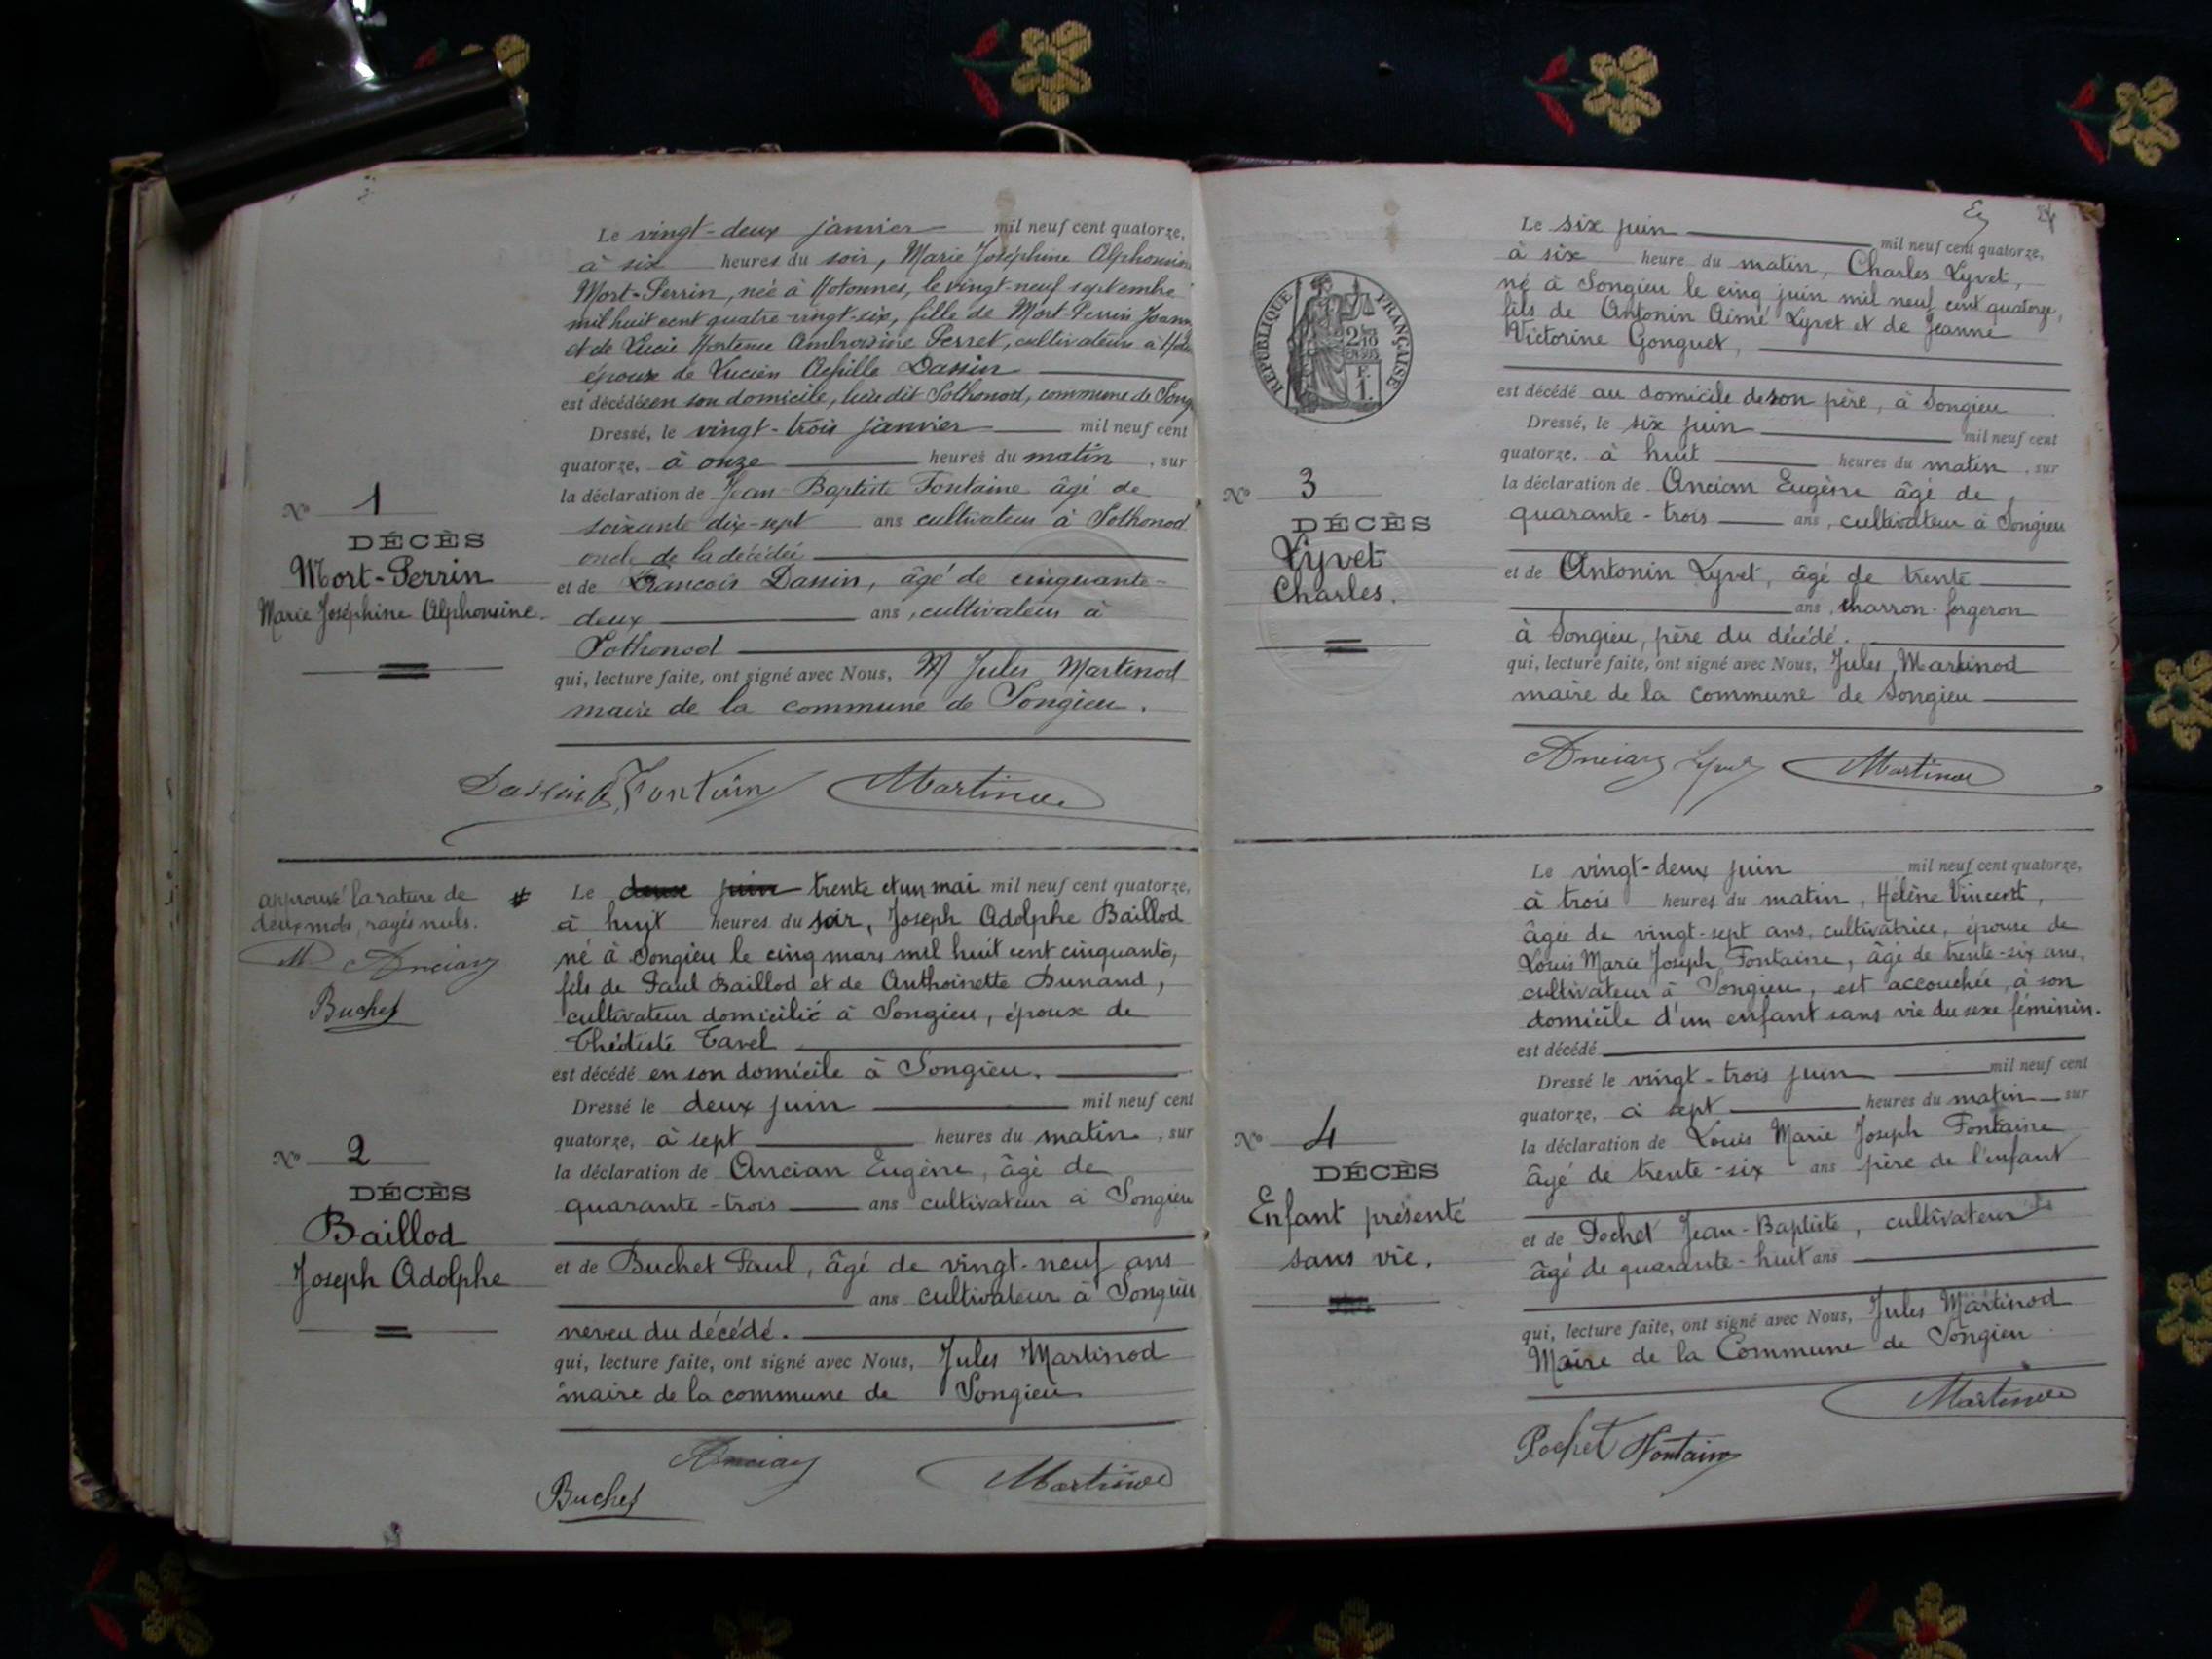 Le vingt-deux janvier mil neuf cent quatorze,
à six heures du soir, Marie Joséphine Alphonsine
Mort-Perrin, née à Hotonnes, le vingt-neuf septembre
mil huit cent quatre-vingt-six, fille de Mort-Perrin Joann
et de Lucie Hortense Ambroisine Perret, cultivateurs à Hoton
épouse de Lucien Achille Dassin
est décédée en son domicile, lieu dit Sothonod, commune de Song
Dressé, le vingt-trois janvier mil neuf cent
quatorze, à onze heures du matin, sur
la déclaration de Jean-Baptiste Fontaine âgé de
soixante dix-sept ans cultivateur à Sothonod
oncle de la décédée
et de François Dassin, âgé de cinquante-
deux ans, cultivateur à
Sothonod
qui, lecture faite, ont signé avec Nous, M Jules Martinod
maire de la commune de Songieu.
Nº 1
DÉCÈS
Mort-Perrin
Marie Joséphine Alphonsine.
Dassin Fontain Martinod
approuvé la rature de
deux mots, rayés nuls.
M Ancian
Buchet
# Le deux juin trente et un mai mil neuf cent quatorze,
à huit heures du soir, Joseph Adolphe Baillod
né à Songieu le cinq mars mil huit cent cinquante,
fils de Paul Baillod et de Anthoinette Dunand,
cultivateur domicilié à Songieu, époux de
Théotiste Tavel
est décédé en son domicile à Songieu.
Dressé le deux juin mil neuf cent
quatorze, à sept heures du matin, sur
la déclaration de Ancian Eugène, âgé de
quarante-trois ans cultivateur à Songieu
et de Buchet Paul, âgé de vingt-neuf ans
ans cultivateur à Songieu
neveu du décédé.
qui, lecture faite, ont signé avec Nous, Jules Martinod
maire de la commune de Songieu
Nº 2
DÉCÈS
Baillod
Joseph Adolphe
Ancian
Buchet Martinod
RÉPUBLIQUE FRANÇAISE
2/10
F.
1.
Le six juin mil neuf cent quatorze,
à six heure du matin, Charles Lyvet,
né à Songieu le cinq juin mil neuf cent quatorze,
fils de Antonin Aimé Lyvet et de Jeanne
Victorine Gonguet,
est décédé au domicile de son père, à Songieu
Dressé, le six juin mil neuf cent
quatorze, à huit heures du matin, sur
la déclaration de Ancian Eugène âgé de
quarante-trois ans, cultivateur à Songieu
et de Antonin Lyvet, âgé de trente
ans, charron-forgeron
à Songieu, père du décédé.
qui, lecture faite, ont signé avec Nous, Jules Martinod
maire de la commune de Songieu
Nº 3
DÉCÈS
Lyvet
Charles.
Ancian Lyvet Martinod
Le vingt-deux juin mil neuf cent quatorze,
à trois heures du matin, Hélène Vincent,
âgée de vingt-sept ans, cultivatrice, épouse de
Louis Marie Joseph Fontaine, âgé de trente-six ans,
cultivateur à Songieu, est accouchée, à son
domicile d'un enfant sans vie du sexe féminin.
est décédé
Dressé le vingt-trois juin mil neuf cent
quatorze, à sept heures du matin sur
la déclaration de Louis Marie Joseph Fontaine
âgé de trente-six ans père de l'enfant
et de Pochet Jean-Baptiste, cultivateur
âgé de quarante-huit ans
qui, lecture faite, ont signé avec Nous, Jules Martinod
Maire de la Commune de Songieu
Nº 4
DÉCÈS
Enfant présenté
sans vie.
Martinod
Pochet Fontaine